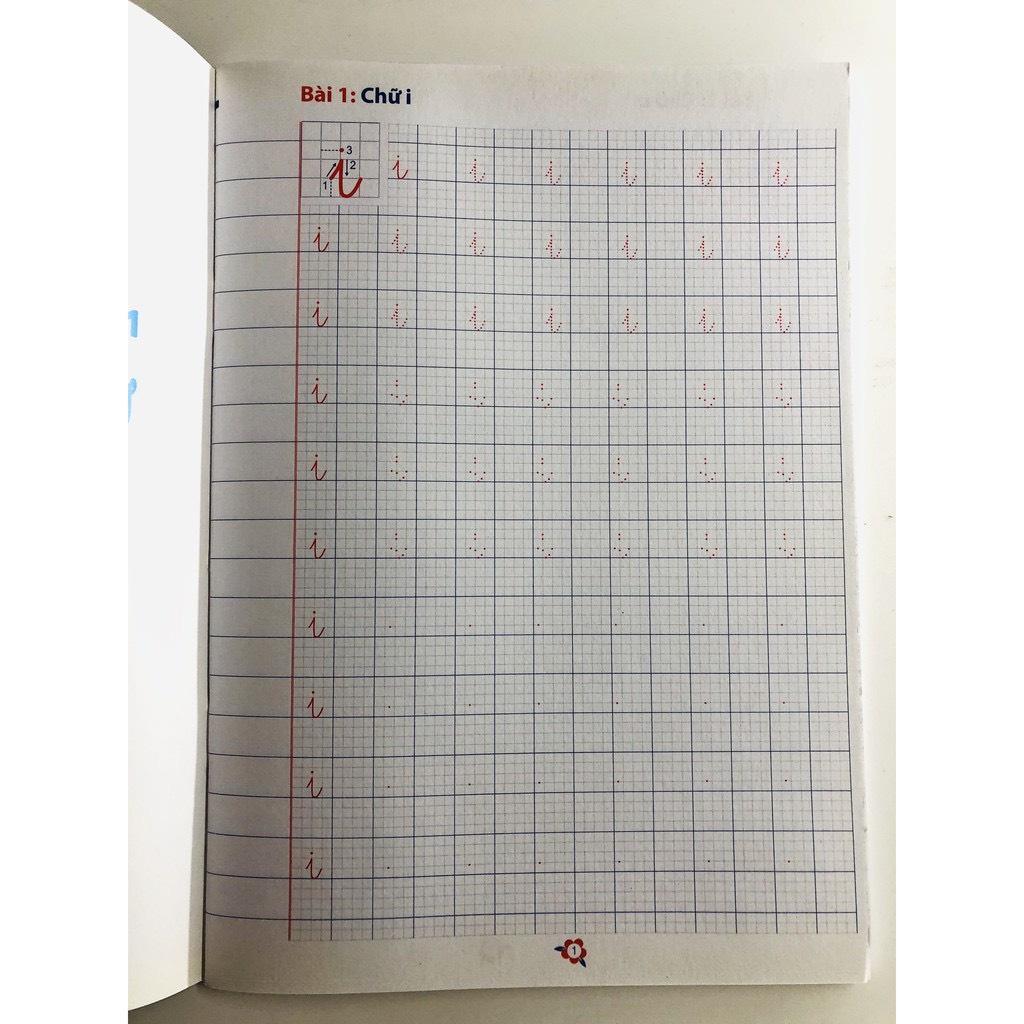 Bài 1: Chữ i
3
2
1
i i i i i i i
i i i i i i i
i i i i i i i
i i i i i i i
i i i i i i i
i i i i i i i
i
i
i
i
1